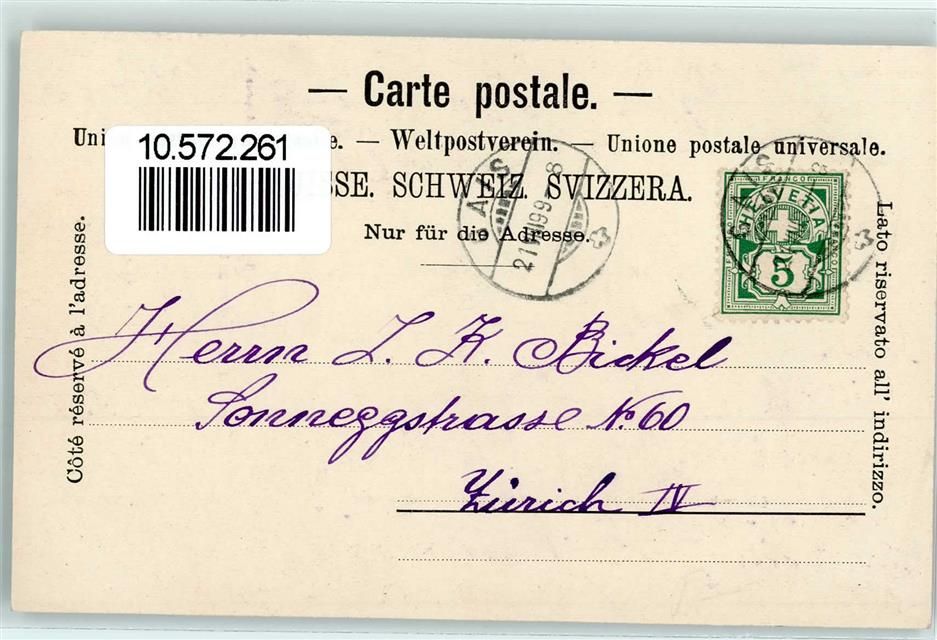 — Carte postale. —
10.572.261
Uni e. — Weltpostverein. — Unione postale universale.
ISSE. SCHWEIZ SVIZZERA.
Nur für die Adresse.
GAIS
21 99 8
FRANCO
HELVETIA
5
Côté réservé à l'adresse.
Lato riservato all' indirizzo.
Herrn J. K. Bickel
Sonneggstrasse No 60
Zürich IV